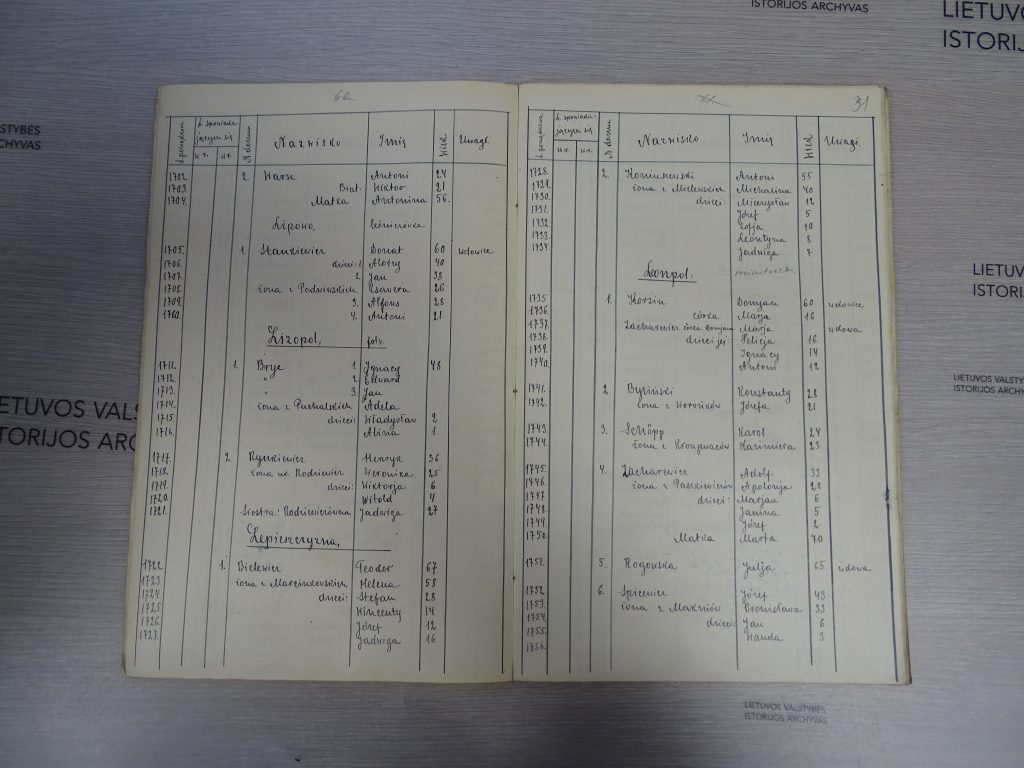 ISTORIJOS ARCHYVAS
LIETUVOS
ISTORIJ
LSTYBĖS
HYVAS
LIETU
ISTORI
LIETUVOS VALST
ISTORIJOS ARCHY
ETUVOS VALST
TORIJOS ARCH
LIETUVOS VALSTYBĖS
ISTORIJOS ARCHYVAS
l. porządkowa l. spowiadających się N. domu Nazwisko Imię Wiek Uwagi.
1702. 2. Warsz Antoni 24
1703. Brat: Wiktor 21
1704. Matka Antonina 56.
Lipowo, leśniczówka
1705. 1. Stankiewicz Donat 60 wdowiec.
1706. dzieci: 1. Alojzy 40
1707. 2. Jan 38
1708. żona z Podwińskich Ksawera 26
1709. 3. Alfons 28
1710. 4. Antoni 21.
Lizopol, folw.
1711. 1. Bryc 1. Ignacy 48
1712. " 2. Edward
1713. " 3. Jan
1714. żona z Puchalskich Adela
1715. dzieci: Władysław 2
1716. Alina 1
1717. 2. Rynkiewicz Henryk 36
1718. żona ur. Rodziewicz Weronika 25
1719. dzieci: Wiktorja 6
1720. Witold 4
1721. Siostra: Rodziewiczówna Jadwiga 27
Lepieszczyzna,
1722. 1. Bielewicz Teodor 67
1723. żona z Marcinkowskich Helena 58
1724. dzieci: Stefan 28
1725. Wincenty 14
1726. Józef 12
1727. Jadwiga 16
31
l. porządkowa l. spowiadających się N. domu Nazwisko Imię Wiek Uwagi
1728. 2. Koniuszewski Antoni 55
1729. żona z Milewskich Michalina 40
1730. dzieci: Mieczysław 12
1731. Józef 5
1732. Zofja 10
1733. Leontyna 8
1734. Jadwiga 7
Leonpol. miasteczk.
1735 1. Korzin Domjan 60 wdowiec
1736. córka Marja 16
1737. Zacharewicz córka Domjana Marja wdowa
1738. dzieci jej: Felicja 16
1739. Ignacy 14
1740. Antoni 12
1741. 2. Byliński Konstanty 28
1742. żona z Woronków Józefa 21
1743. 3. Schöpp Karol 24
1744. żona z Kazimiera 23
1745. 4. Zacharewicz Adolf 33
1746. żona z Paszkiewiczów Apolonja 28
1747. dzieci: Marjan 6
1748. Janina 5
1749. Józef 2
1750. Matka Marta 70
1751. 5. Rogowska Julja 65 wdowa
1752. 6. Spicewicz Józef 43
1753. żona z Bronisława 33
1754. dzieci: Jan 6
1755. Wanda 3
1756.
LIETUVOS VALSTYBĖS
ISTORIJOS ARCHYVAS